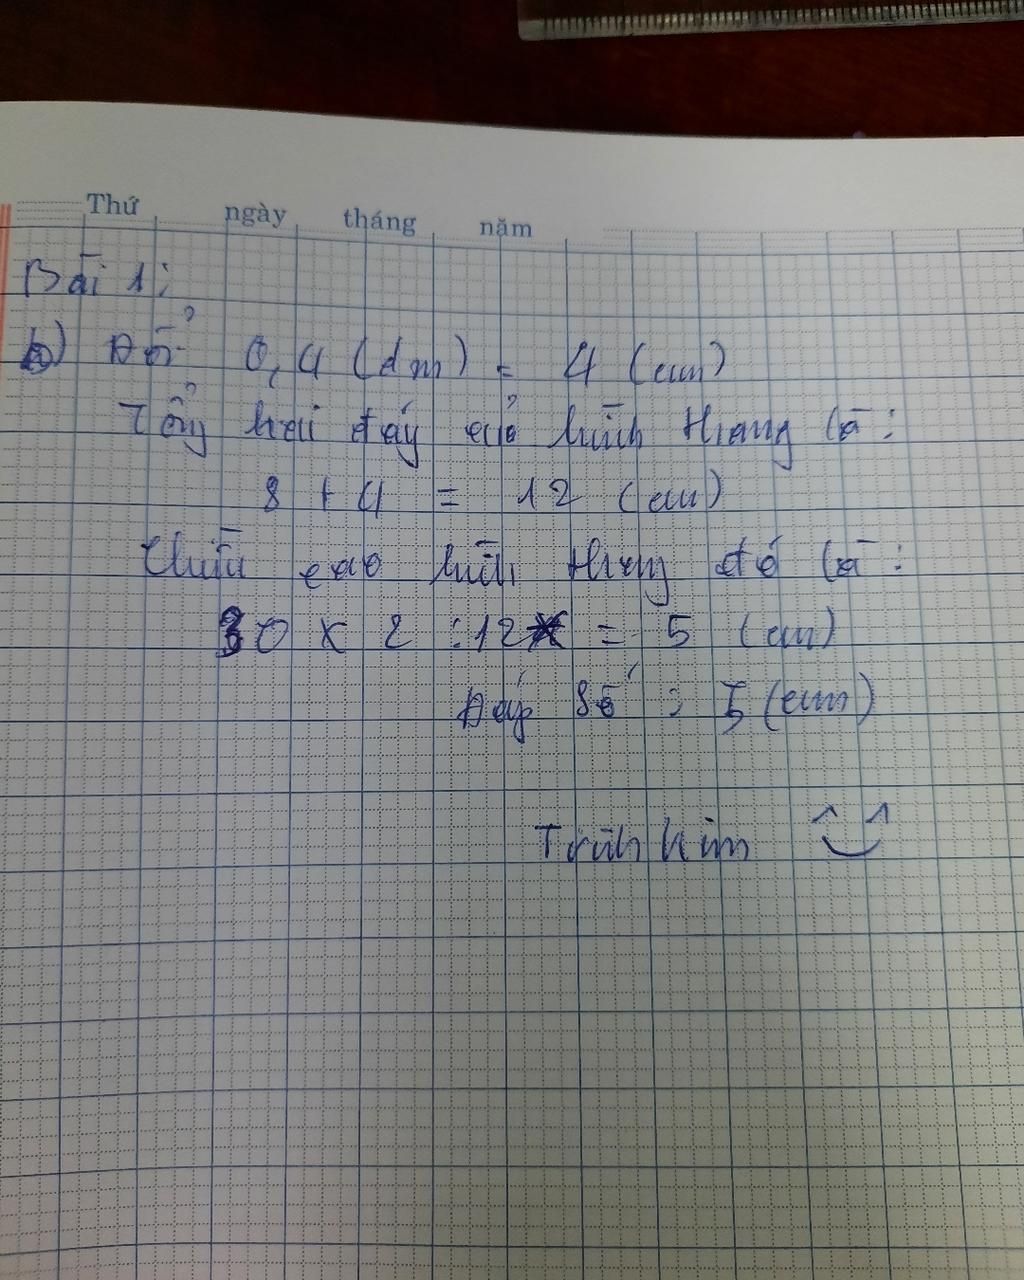 Thứ ngày tháng năm
Bài 1:
b) Đổi 0,4 (dm) = 4 (cm)
Tổng hai đáy của hình thang là:
8 + 4 = 12 (cm)
Chiều cao hình thang đó là:
30 x 2 : 12 = 5 (cm)
Đáp số : 5 (cm)